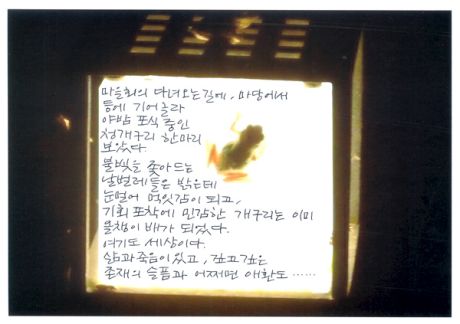 마을회의 다녀오는길에, 마당에서
등에 기어올라
야밤 포식 중인
청개구리 한마리
보았다
불빛을 쫓아드는
날벌레들은 밝은데
눈멀어 먹잇감이 되고,
기회 포착에 민감한 개구리는 이미
올챙이 배가 되었다.
여기도 세상이다.
삶과 죽음이 있고, 깊고 깊은
존재의 슬픔과 어쩌면 애환도 ……